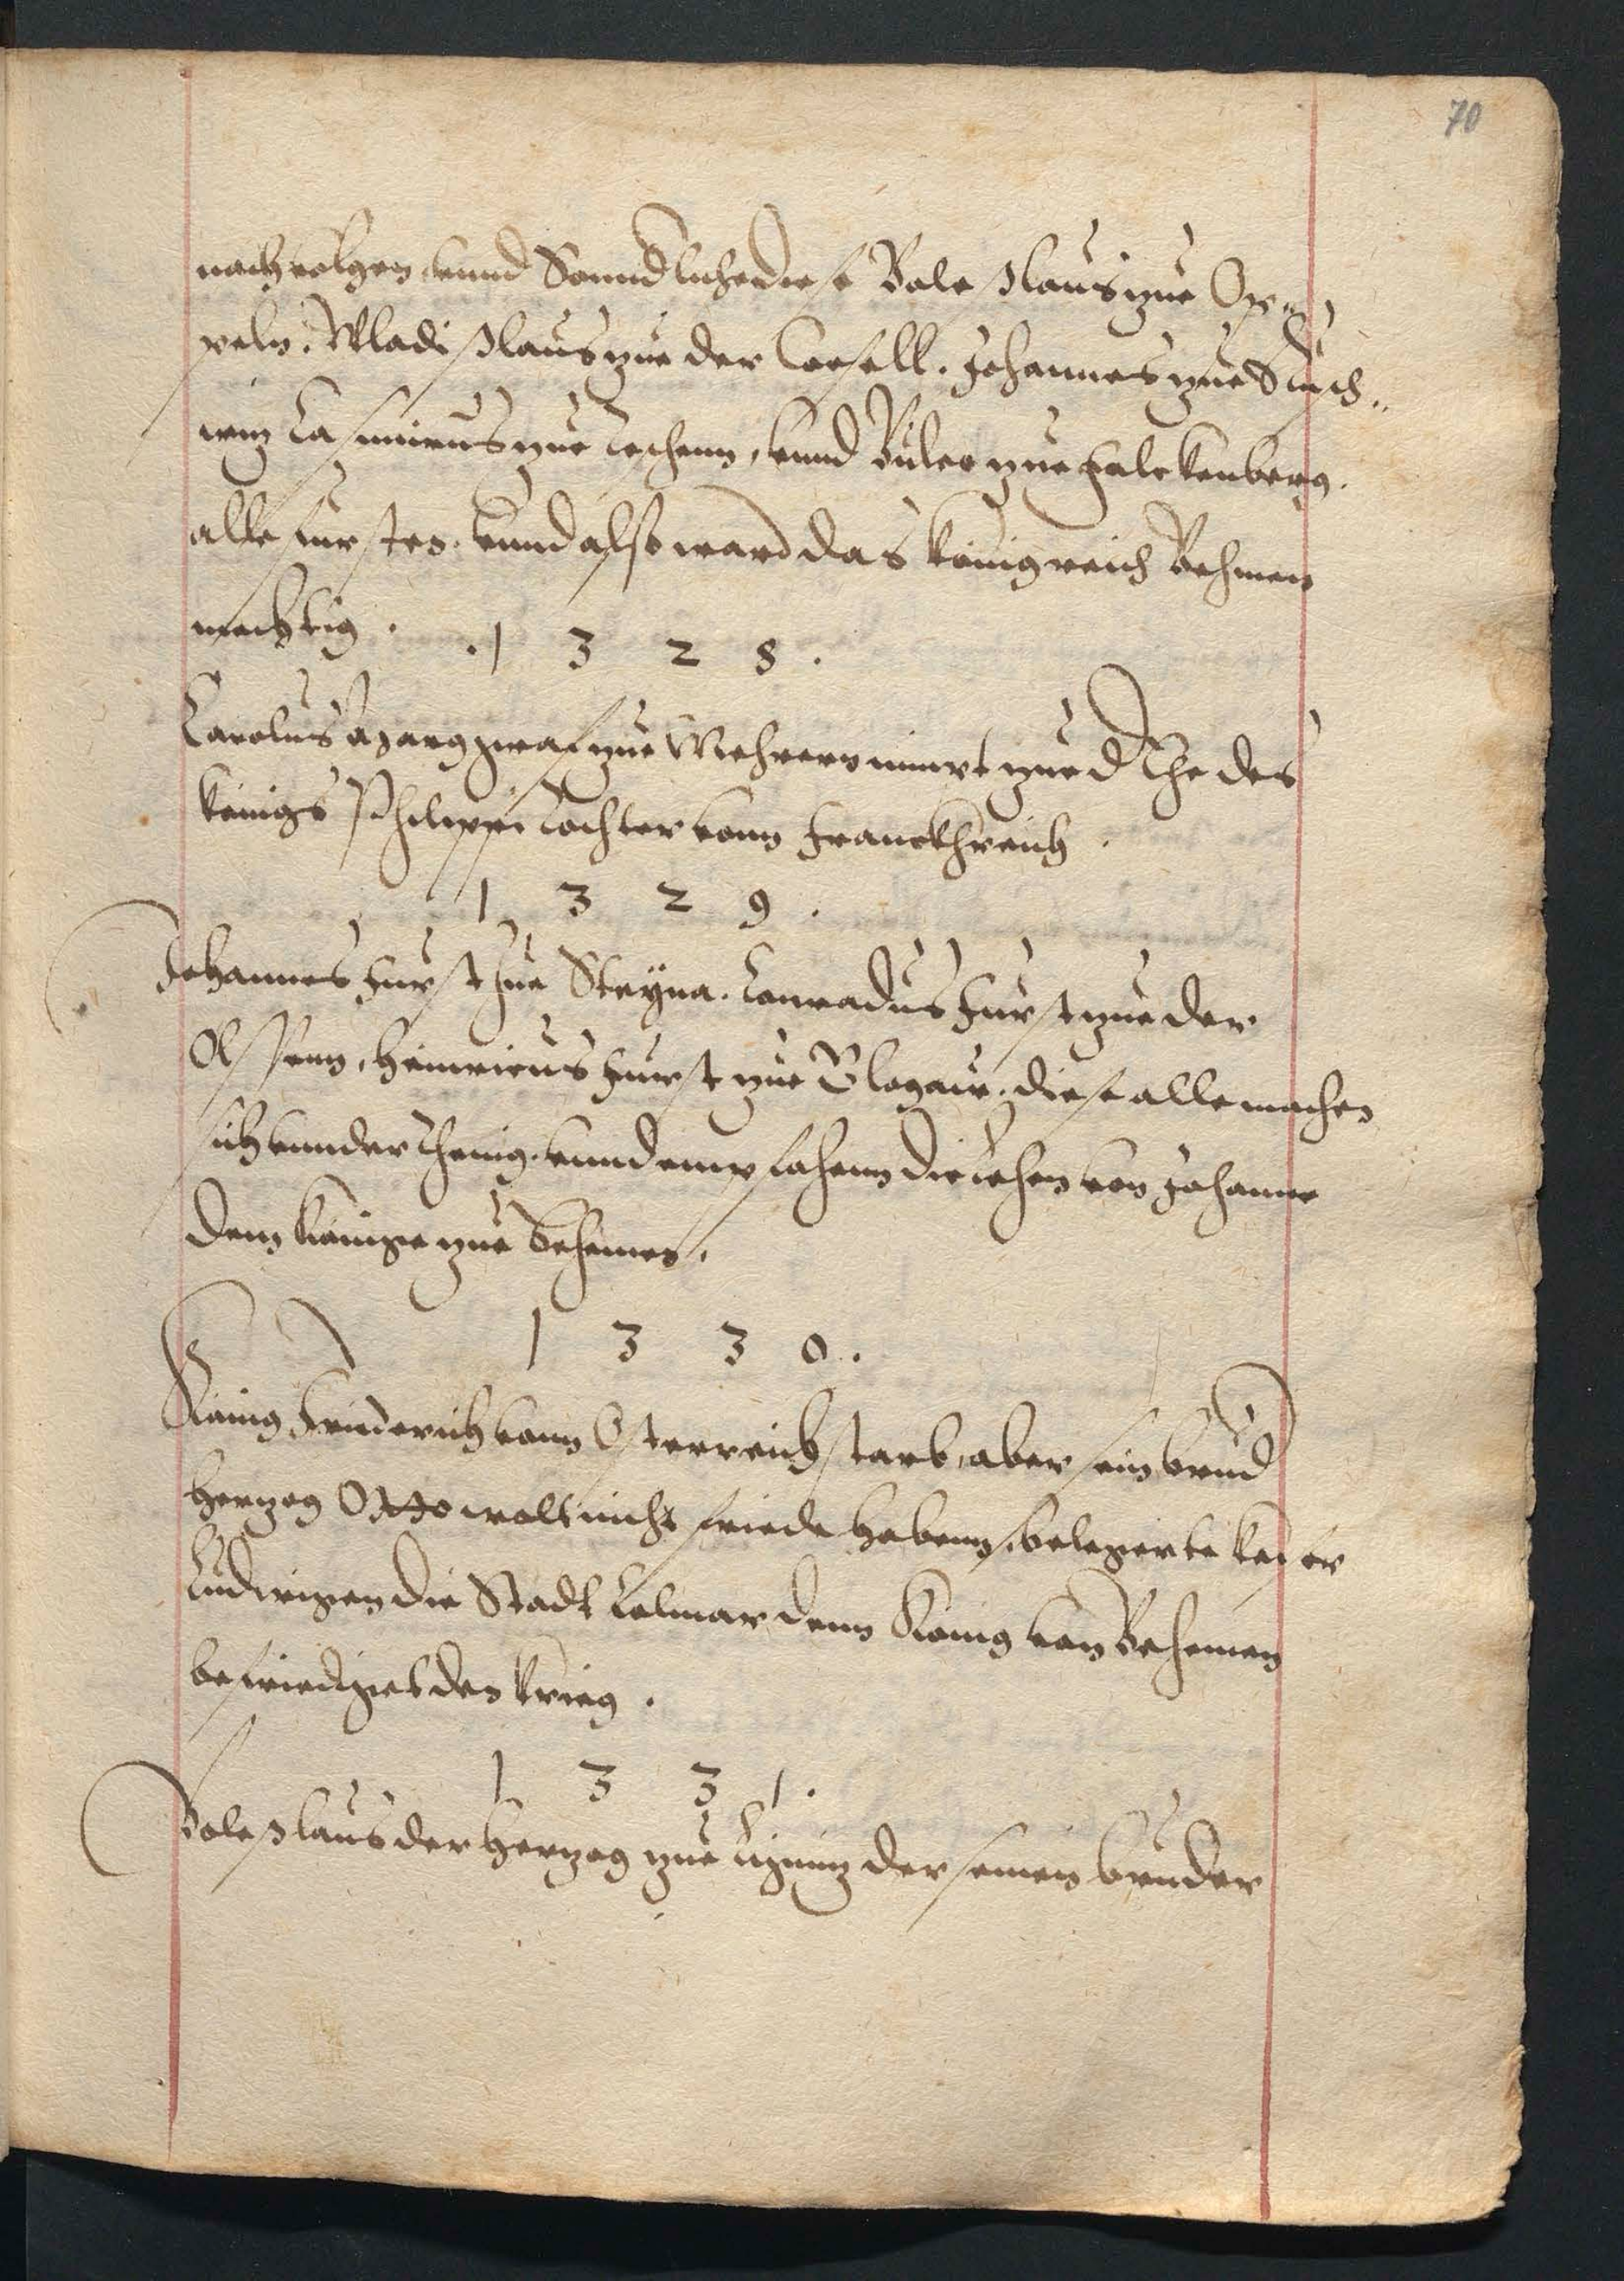 70
nachvolgen, vnnd Sonnd lichediese Bole slaus zue Op„
peln. Wladißlaus zue der Coesell. Johannes zue Ausch„
witz Casimirus zue Teschenn, vnnd Bulco zue Falckenberg.
alle fursten. vnnd also ward das königreich Behmen
mechtig. .1 3 2 8.
Carolus Margraf zue Mehrern nimpt zue d Ehe des
königs Philippi Tochter vonn Franckhreich.
1 3 2 9.
Johannes Furst zue Steyna. Conradus Furst zue der
Olssenn, Heinricus Furst zue Glogaw. diese alle machen
sich vnnderthenig. vnnd empfahenn die lehen von Johanne
dem Könige zue Behemen.
1 3 3 0.
König Friderich vonn Osterreich starb, aber sein brud
Hertzog Otto wolt nicht friede habenn, belegerte keiser
Ludwigen die Stadt Colmar denn König von Behemen
befriediget den krieg.
1 3 3 1.
Boleßlaus der Hertzog zue Lignitz der seinen bruder